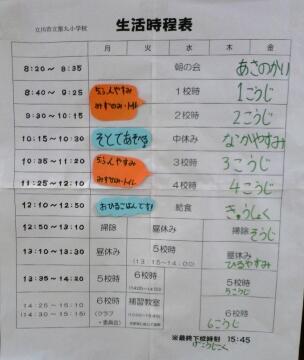 生活時程表
月 火 水 木 金
8:20～ 8:35 朝の会 あさのかい
8:40～ 9:25 5ふんやすみ 1校時 1こうじ
みずのみ・トイレ
9:30～10:15 2校時 2こうじ
10:15～10:30 そとであそべる 中休み なかやすみ
10:35～11:20 5ふんやすみ 3校時 3こうじ
11:25～12:10 みずのみ・トイレ 4校時 4こうじ
12:10～12:50 おひるごはんです! 給食 きゅうしょく
12:50～13:10 掃除 昼休み 掃除 そうじ
13:10～13:30 昼休み 5校時 昼休み
(13:15～14:00) ひるやすみ
13:35～14:20 5校時 6校時 5校時
5こうじ
14:25～15:10 6校時 補習教室 6校時
(14:30～15:15) (クラブ・委員会) 6こうじ
※最終下校時刻 15:45